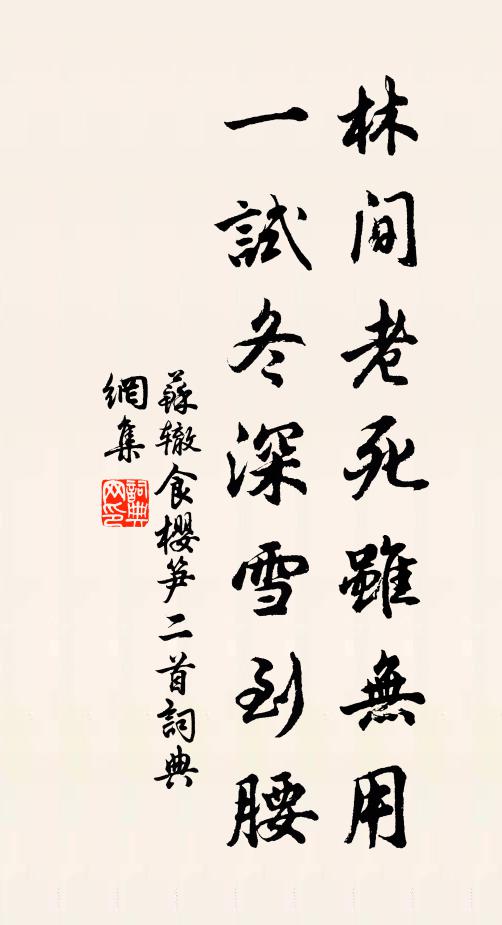 林間老死雖無用
一試冬深雪到腰
蘇轍食櫻笋二首詞典
網集
詞典网印